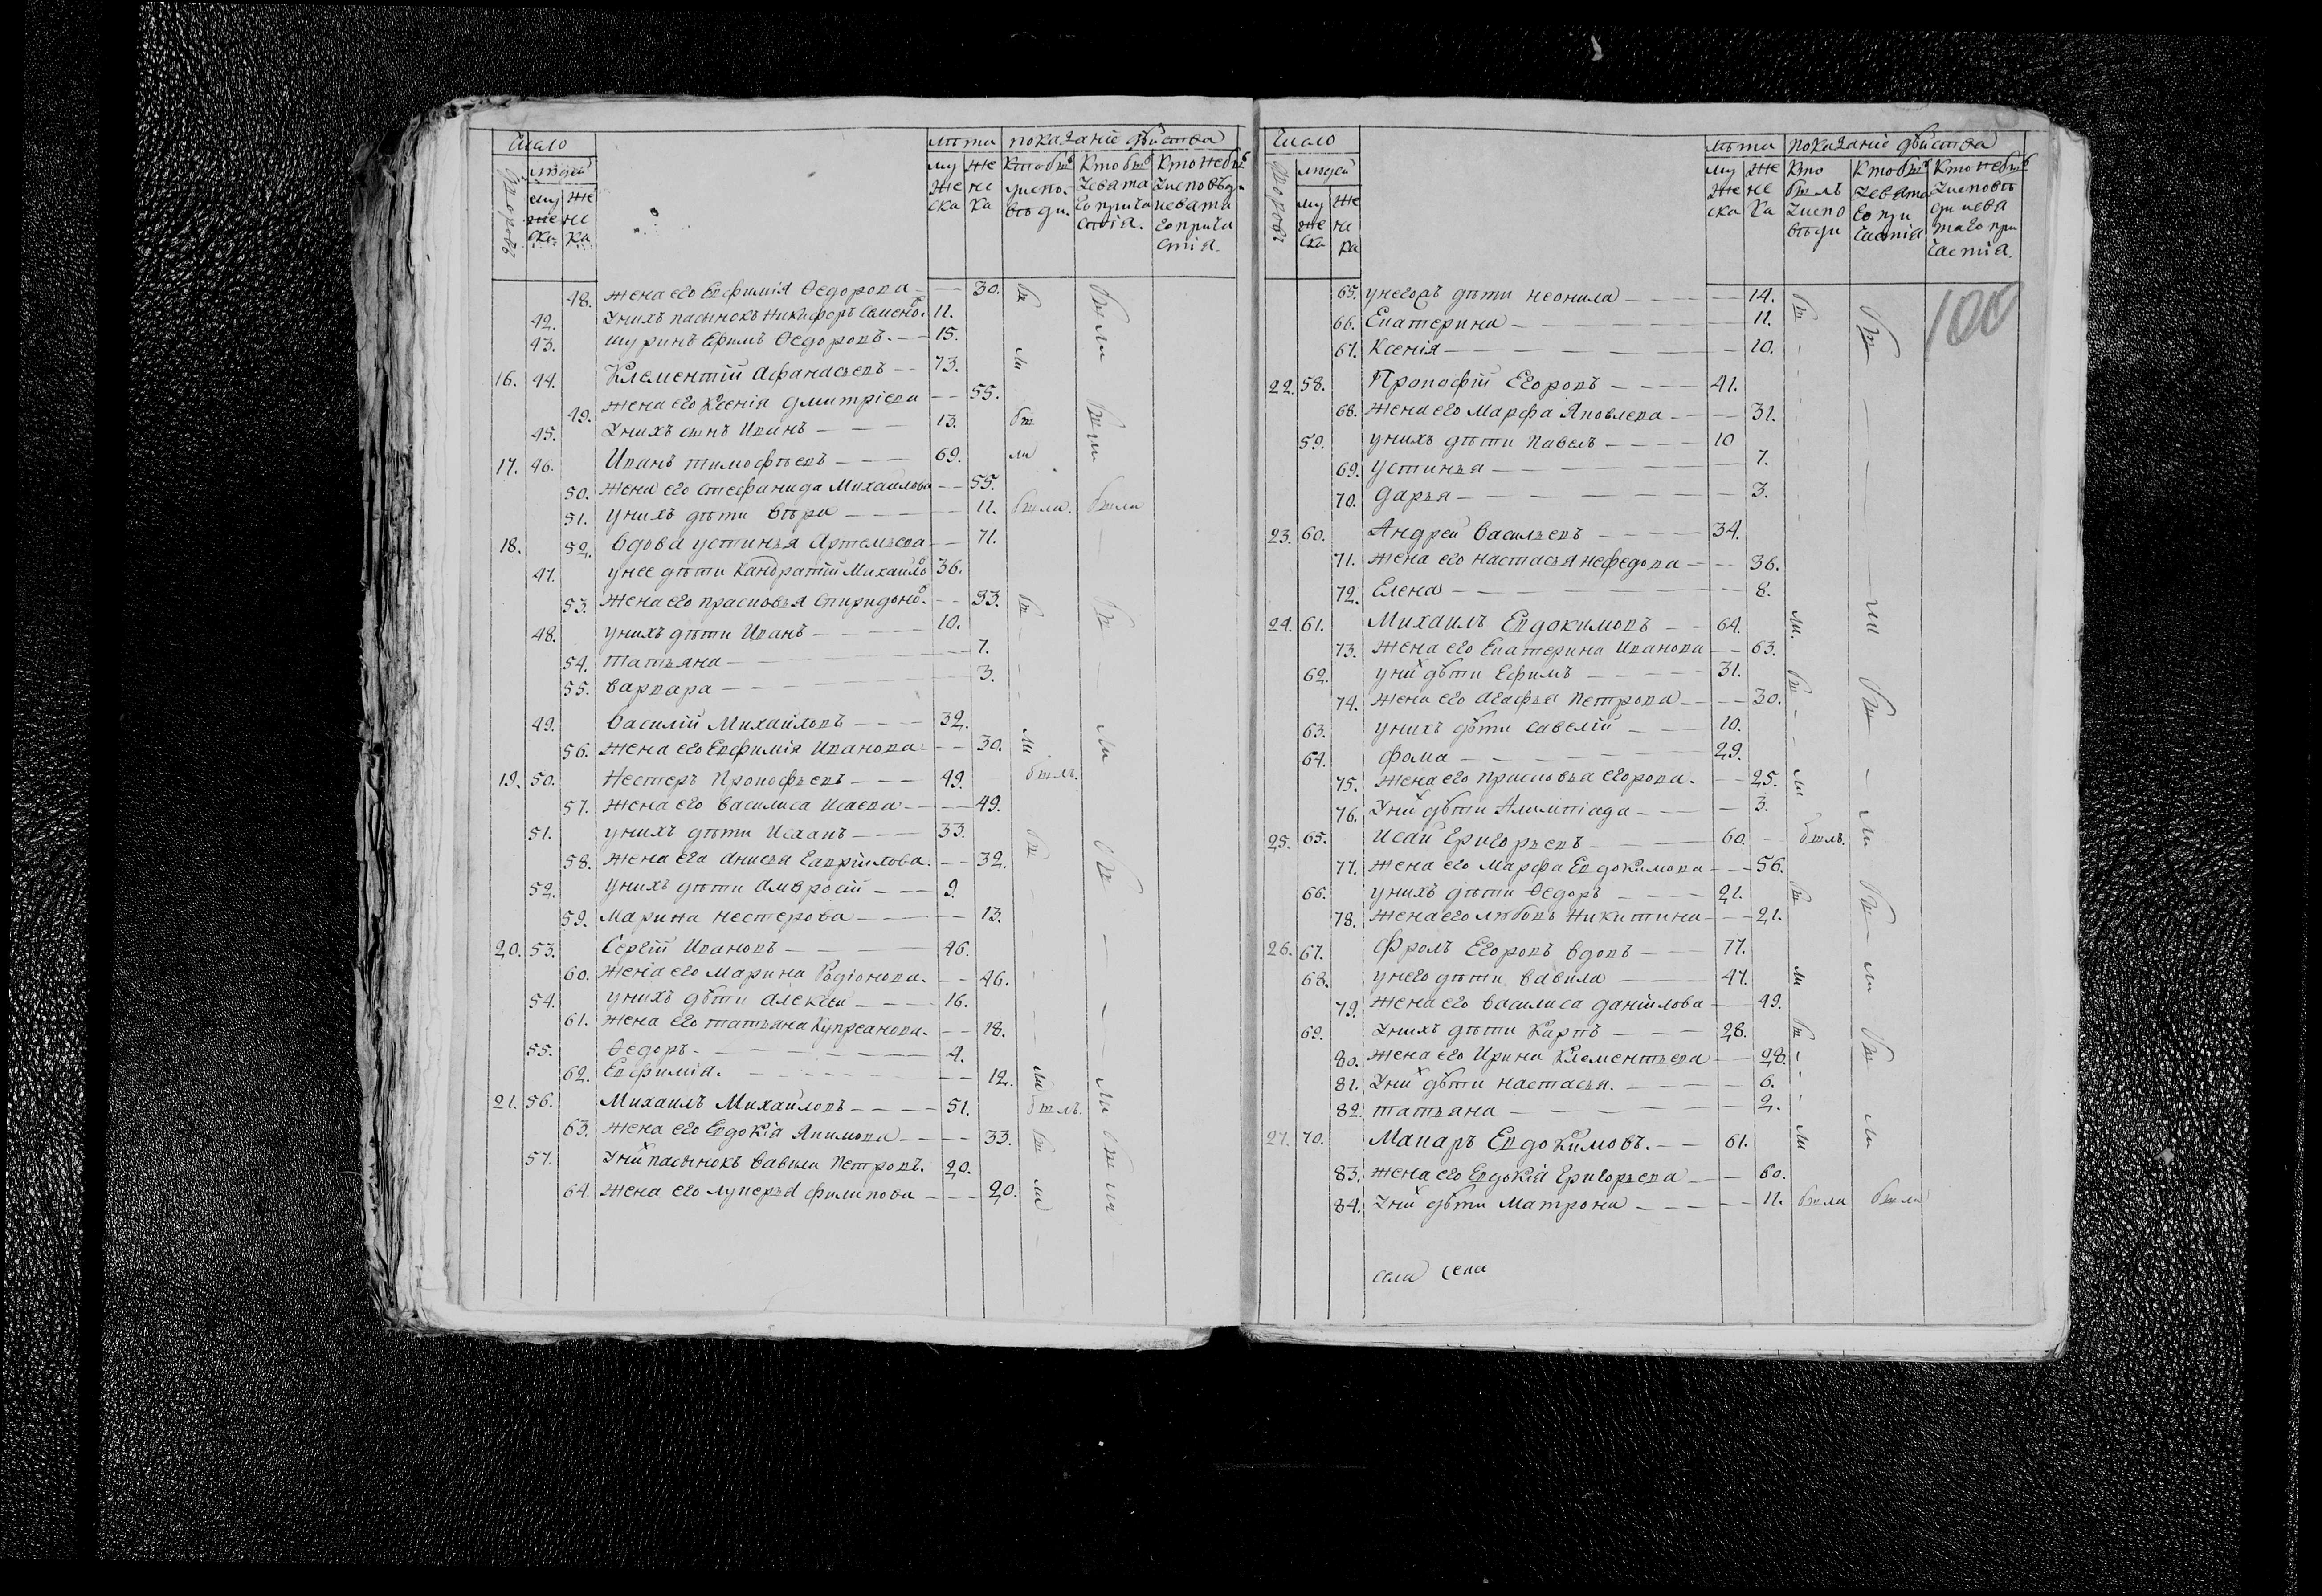 Число
людей
дворовъ
му
же
ска
же
не
ка
лѣта
му
же
ска
же
нс
ка
показаніе дѣйства
Кто бы
у испо-
вѣди.
Кто бы
исвята
го прича
стія.
Кто небы
у исповѣди
исвята
го прича
стія.
48. жена его Евфимія Ѳедорова — 30.
42. У нихъ пасынокъ Никифоръ Семено 11.
43. шуринъ Ефимъ Ѳедоровъ. — 15.
16. 44. Климентій Афанасьевъ — 73.
49. жена его Ксенія Дмитріева — 55.
45. У нихъ сынъ Иванъ — 13.
17. 46. Иванъ Тимофѣевъ — 69.
50. жена его Стефанида Михаилова — 55.
51. у нихъ дѣти Вѣра — 11. была. была
18. 52. Вдова Устинья Артемьева — 71.
47. у нее дѣти Кандратій Михайло 36.
53. жена его Прасковья Спиридоно. — 33.
48. у нихъ дѣти Иванъ — 10.
54. Татьяна — 7.
55. Варвара — 3.
49. Василій Михайловъ — 32.
56. жена его Евфимія Иванова — 30.
19. 50. Нестеръ Прокофьевъ — 49. былъ.
57. жена его Василиса Исаева — 49.
51. у нихъ дѣти Исаакъ — 33.
58. жена его Анисья Гаврилова. — 32.
52. у нихъ дѣти Амвросій — 9.
59. Марина Нестерова — 13.
20. 53. Сергій Ивановъ — 46.
60. жена его Марина Родіонова. — 46.
54. у нихъ дѣти Алексѣй — 16.
61. жена его Татьяна Купреанова. — 18.
55. Ѳедоръ. — 4.
62. Евфимія. — 12.
21. 56. Михаилъ Михайловъ — 51. былъ.
63. жена его Евдокія Якимова — 33.
57. У них пасынокъ Вавила Петровъ. 20.
64. жена его Лукерья Филипова — 20.
Число
людей
дворовъ
му
же
ска
же
не
ка
лѣта
му
же
ска
же
нс
ка
показаніе дѣйства
Кто
былъ
у испо
вѣди
Кто бы
исвята
го при
частія
Кто небы
у исповѣ
ди исвя
таго при
частія.
100
65. у него дѣти Неонила — 14.
66. Екатерина — 11.
67. Ксенія — 10.
22. 58. Прокофій Егоровъ — 41.
68. жена его Марфа Яковлева — 31.
59. у нихъ дѣти Павелъ — 10
69. Устинья — 7.
70. Дарья — 3.
23. 60. Андрей Васильевъ — 34.
71. жена его Настасья Нефедова — 36.
72. Елена — 8.
24. 61. Михаилъ Евдокимовъ — 64.
73. жена его Екатерина Иванова — 63.
62. у них дѣти Ефимъ — 31.
74. жена его Агафья Петрова — 30.
63. у нихъ дѣти Савелій — 10.
64. Фома — 29.
75. жена его Прасковья Егорова. — 25.
76. У них дѣти Алимпіада — 3.
25. 65. Исай Григорьевъ — 60. былъ.
77. жена его Марфа Евдокимова — 56.
66. у нихъ дѣти Ѳедоръ — 21.
78. жена его Любовь Никитина — 21.
26. 67. Фролъ Егоровъ вдовъ — 77.
68. у него дѣти Вавила — 47.
79. жена его Василиса Данілова — 49.
69. У нихъ дѣти Карпъ — 28.
80. жена его Ирина Клементьева — 28.
81. У них дѣти Настасья. — 6.
82. Татьяна — 2.
27. 70. Макаръ Евдокимовъ. — 61.
83. жена его Евдокія Григорьева — 60.
84. У них дѣти Матрона — 11. была была
села Сека